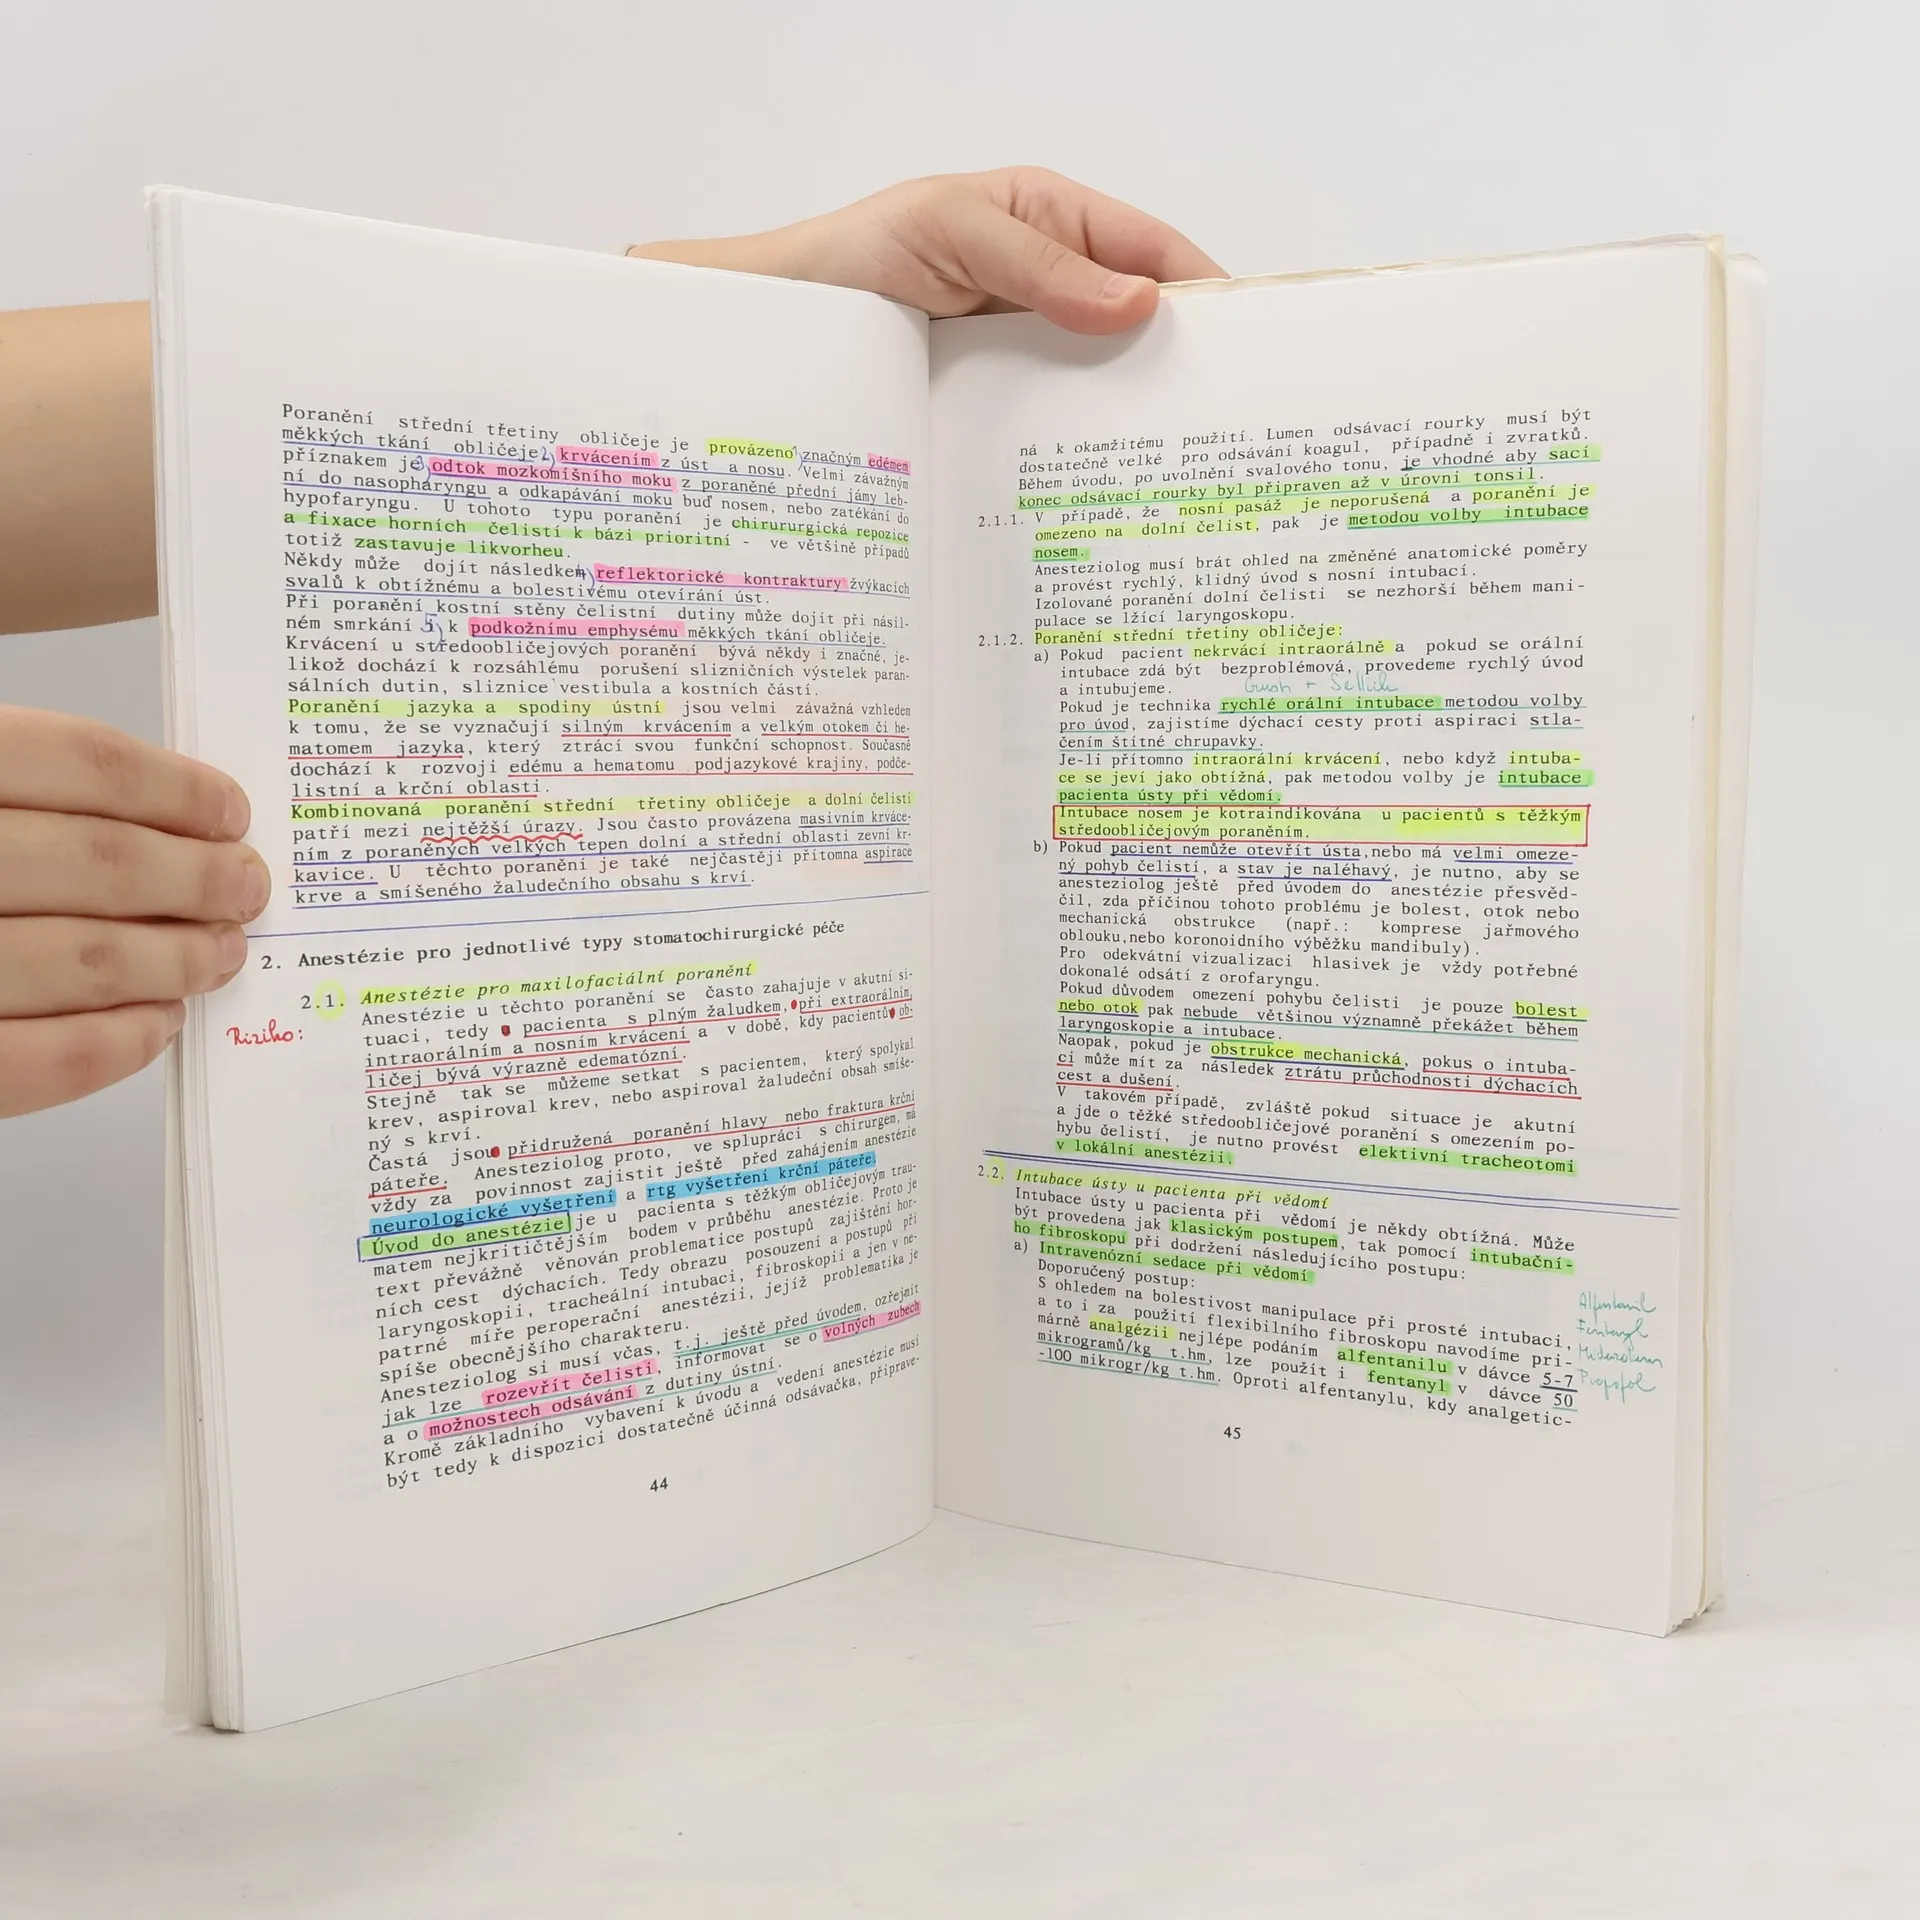 Poranění střední třetiny obličeje je provázeno 1) značným edémem
měkkých tkání obličeje 2) krvácením z úst a nosu. Velmi závažným
příznakem je 3) odtok mozkomíšního moku z poraněné přední jámy leb-
ní do nasopharyngu a odkapávání moku buď nosem, nebo zatékání do
hypofaryngu. U tohoto typu poranění je chirururgická repozice
a fixace horních čelistí k bázi prioritní - ve většině případů
totiž zastavuje likvorheu.
Někdy může dojít následkem 4) reflektorické kontraktury žvýkacích
svalů k obtížnému a bolestivému otevírání úst.
Při poranění kostní stěny čelistní dutiny může dojít při násil-
ném smrkání 5) k podkožnímu emphysému měkkých tkání obličeje.
Krvácení u středoobličejových poranění bývá někdy i značné, je-
likož dochází k rozsáhlému porušení slizničních výstelek paran-
sálních dutin, sliznice vestibula a kostních částí.
Poranění jazyka a spodiny ústní jsou velmi závažná vzhledem
k tomu, že se vyznačují silným krvácením a velkým otokem či he-
matomem jazyka, který ztrácí svou funkční schopnost. Současně
dochází k rozvoji edému a hematomu podjazykové krajiny, podče-
listní a krční oblasti.
Kombinovaná poranění střední třetiny obličeje a dolní čelisti
patří mezi nejtěžší úrazy. Jsou často provázena masivním krváce-
ním z poraněných velkých tepen dolní a střední oblasti zevní kr-
kavice. U těchto poranění je také nejčastěji přítomna aspirace
krve a smíšeného žaludečního obsahu s krví.
2. Anestézie pro jednotlivé typy stomatochirurgické péče
2.1. Anestézie pro maxilofaciální poranění
Riziko:
Anestézie u těchto poranění se často zahajuje v akutní si-
tuaci, tedy u pacienta s plným žaludkem, při extraorálním,
intraorálním a nosním krvácení a v době, kdy pacientův ob-
ličej bývá výrazně edematózní.
Stejně tak se můžeme setkat s pacientem, který spolykal
krev, aspiroval krev, nebo aspiroval žaludeční obsah smíše-
ný s krví.
Častá jsou přidružená poranění hlavy nebo fraktura krční
páteře. Anesteziolog proto, ve splupráci s chirurgem, má
vždy za povinnost zajistit ještě před zahájením anestézie
neurologické vyšetření a rtg vyšetření krční páteře.
Úvod do anestézie je u pacienta s těžkým obličejovým trau-
matem nejkritičtějším bodem v průběhu anestézie. Proto je
text převážně věnován problematice postupů zajištění hor-
ních cest dýchacích. Tedy obrazu posouzení a postupů při
laryngoskopii, tracheální intubaci, fibroskopii a jen v ne-
patrné míře peroperační anestézii, jejíž problematika je
spíše obecnějšího charakteru.
Anesteziolog si musí včas, t.j. ještě před úvodem, ozřejmit
jak lze rozevřít čelisti, informovat se o volných zubech
a o možnostech odsávání z dutiny ústní.
Kromě základního vybavení k úvodu a vedení anestézie musí
být tedy k dispozici dostatečně účinná odsávačka, připrave-
44
ná k okamžitému použití. Lumen odsávací rourky musí být
dostatečně velké pro odsávání koagul, případně i zvratků.
Během úvodu, po uvolnění svalového tonu, je vhodné aby sací
konec odsávací rourky byl připraven až v úrovni tonsil.
2.1.1. V případě, že nosní pasáž je neporušená a poranění je
omezeno na dolní čelist, pak je metodou volby intubace
nosem.
Anesteziolog musí brát ohled na změněné anatomické poměry
a provést rychlý, klidný úvod s nosní intubací.
Izolované poranění dolní čelisti se nezhorší během mani-
pulace se lžící laryngoskopu.
2.1.2. Poranění střední třetiny obličeje:
a) Pokud pacient nekrvácí intraorálně a pokud se orální
intubace zdá být bezproblémová, provedeme rychlý úvod
a intubujeme.
Crush + Sellick
Pokud je technika rychlé orální intubace metodou volby
pro úvod, zajistíme dýchací cesty proti aspiraci stla-
čením štítné chrupavky.
Je-li přítomno intraorální krvácení, nebo když intuba-
ce se jeví jako obtížná, pak metodou volby je intubace
pacienta ústy při vědomí.
Intubace nosem je kotraindikována u pacientů s těžkým
středoobličejovým poraněním.
b) Pokud pacient nemůže otevřít ústa,nebo má velmi omeze-
ný pohyb čelistí, a stav je naléhavý, je nutno, aby se
anesteziolog ještě před úvodem do anestézie přesvěd-
čil, zda příčinou tohoto problému je bolest, otok nebo
mechanická obstrukce (např.: komprese jařmového
oblouku,nebo koronoidního výběžku mandibuly).
Pro odekvátní vizualizaci hlasivek je vždy potřebné
dokonalé odsátí z orofaryngu.
Pokud důvodem omezení pohybu čelisti je pouze bolest
nebo otok pak nebude většinou významně překážet během
laryngoskopie a intubace.
Naopak, pokud je obstrukce mechanická, pokus o intuba-
ci může mít za následek ztrátu průchodnosti dýchacích
cest a dušení.
V takovém případě, zvláště pokud situace je akutní
a jde o těžké středoobličejové poranění s omezením po-
hybu čelistí, je nutno provést elektivní tracheotomi
v lokální anestézii.
2.2. Intubace ústy u pacienta při vědomí
Intubace ústy u pacienta při vědomí je někdy obtížná. Může
být provedena jak klasickým postupem, tak pomocí intubační-
ho fibroskopu při dodržení následujícího postupu:
a) Intravenózní sedace při vědomí
Doporučený postup:
S ohledem na bolestivost manipulace při prosté intubaci,
a to i za použití flexibilního fibroskopu navodíme pri-
márně analgézii nejlépe podáním alfentanilu v dávce 5-7
mikrogramů/kg t.hm, lze použít i fentanyl v dávce 50
-100 mikrogr/kg t.hm. Oproti alfentanylu, kdy analgetic-
Alfentanil
Fentanyl
Midazolam
Propofol
45